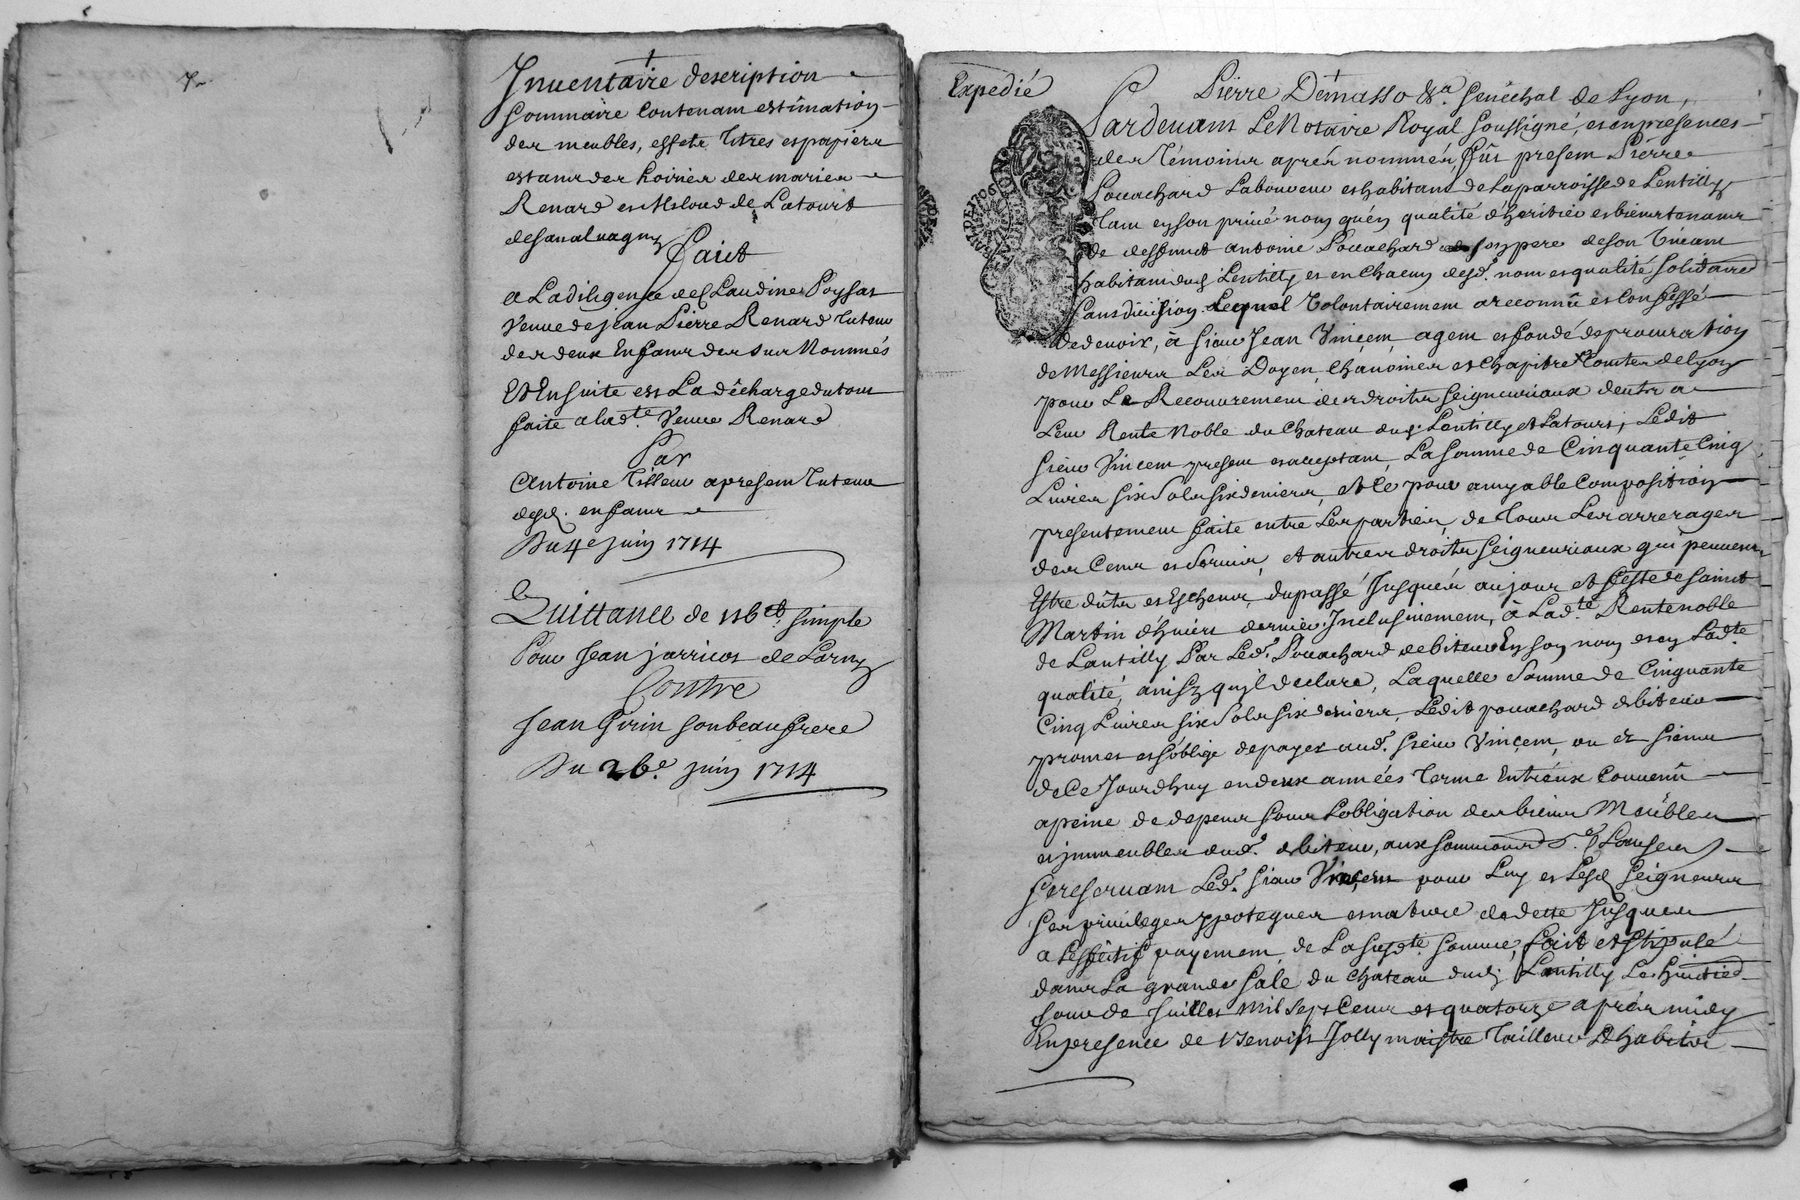 Inventaire description
Sommaire Contenant estimation
des meubles, effets titres et papiers
estant des hoiries des mariés
Renard et
de Latourt
desavalvagny
Fait
a La diligence de Claudine Poysat
Veuve de Jean Pierre Renard tuteur
des deux Enfans des sus Nommés
Et Ensuite est La décharge du tout
faite a lad.te Veuve Renard
Par
Antoine Tilleur apresent tuteur
desd. enfans
Du 4e juin 1714
Quittance de simple
Pour Jean jarricot de
Contre
Jean Girin son beau frere
Du 26.e juin 1714
Expedié
Pierre Demasso &.a Senechal de Lyon,
Pardevant Le Notaire Royal Soussigné, et en presences
des témoins aprés nommés, fût present Pierre
Pouachard Laboureur et habitant de La parroisse de Lentilly
tant en son privé nom qu'en qualité d'heritier et bien tenant
de deffunct antoine Pouachard son pere de son vivant
habitant dud. Lentilly et en chacun desd. nom et qualité Solidaire
Sans division Lequel Volontairement a reconnû et Confessé
de devoir, à Sieur Jean Vinçent, agent et fondé de procuration
de Messieurs Les Doyen, Chanoines et Chapitre Comtes de Lyon
pour Le Recouvrement des droits Seigneuriaux deubs a
Leur Rente Noble du Chateau dud. Lentilly et Latours, Ledit
Sieur Vincent present et acceptant, La Somme de Cinquante Cinq
Livres Six Sols Six deniers, et Ce pour amyable Composition
presentement faite entre Les parties, de tous Les arrerages
des Cens et Servis, et autres droits Seigneuriaux qui peuvent
Estre dûts et Escheus, du passé Jusques au jour et feste de Saint
Martin d'hivers dernier Inclusivement, à Lad.te Rente noble
de Lantilly Par Led.t Pouachard debiteur En son nom et en Lad.te
qualité, ainsy qu'il declare, Laquelle Somme de Cinquante
Cinq Livres Six Sols Six deniers, Ledit pouachard debiteur
promet et s'oblige de payer aud.t Sieur Vinçent, ou es Siens
de Ce Jourdhuy en deux années terme Entreux Convenû
a peine de depens Sous L'obligation des biens Meubles
et immeubles dud.t debiteur, aux Sommond
Se reservant Led.t Sieur Vinçent pour Luy et Lesd. Seigneurs
Ses privileges hypoteques et nature de dette Jusques
a L'effectif payement de La Susd.te Somme, fait et Stipulé
dans La grande Sale du Chateau dud. Lantilly Le huitied
Jour de Juillet Mil Sept Cens et quatorze aprés midy
En presence de Benoist Jolly maistre tailleur d'habits